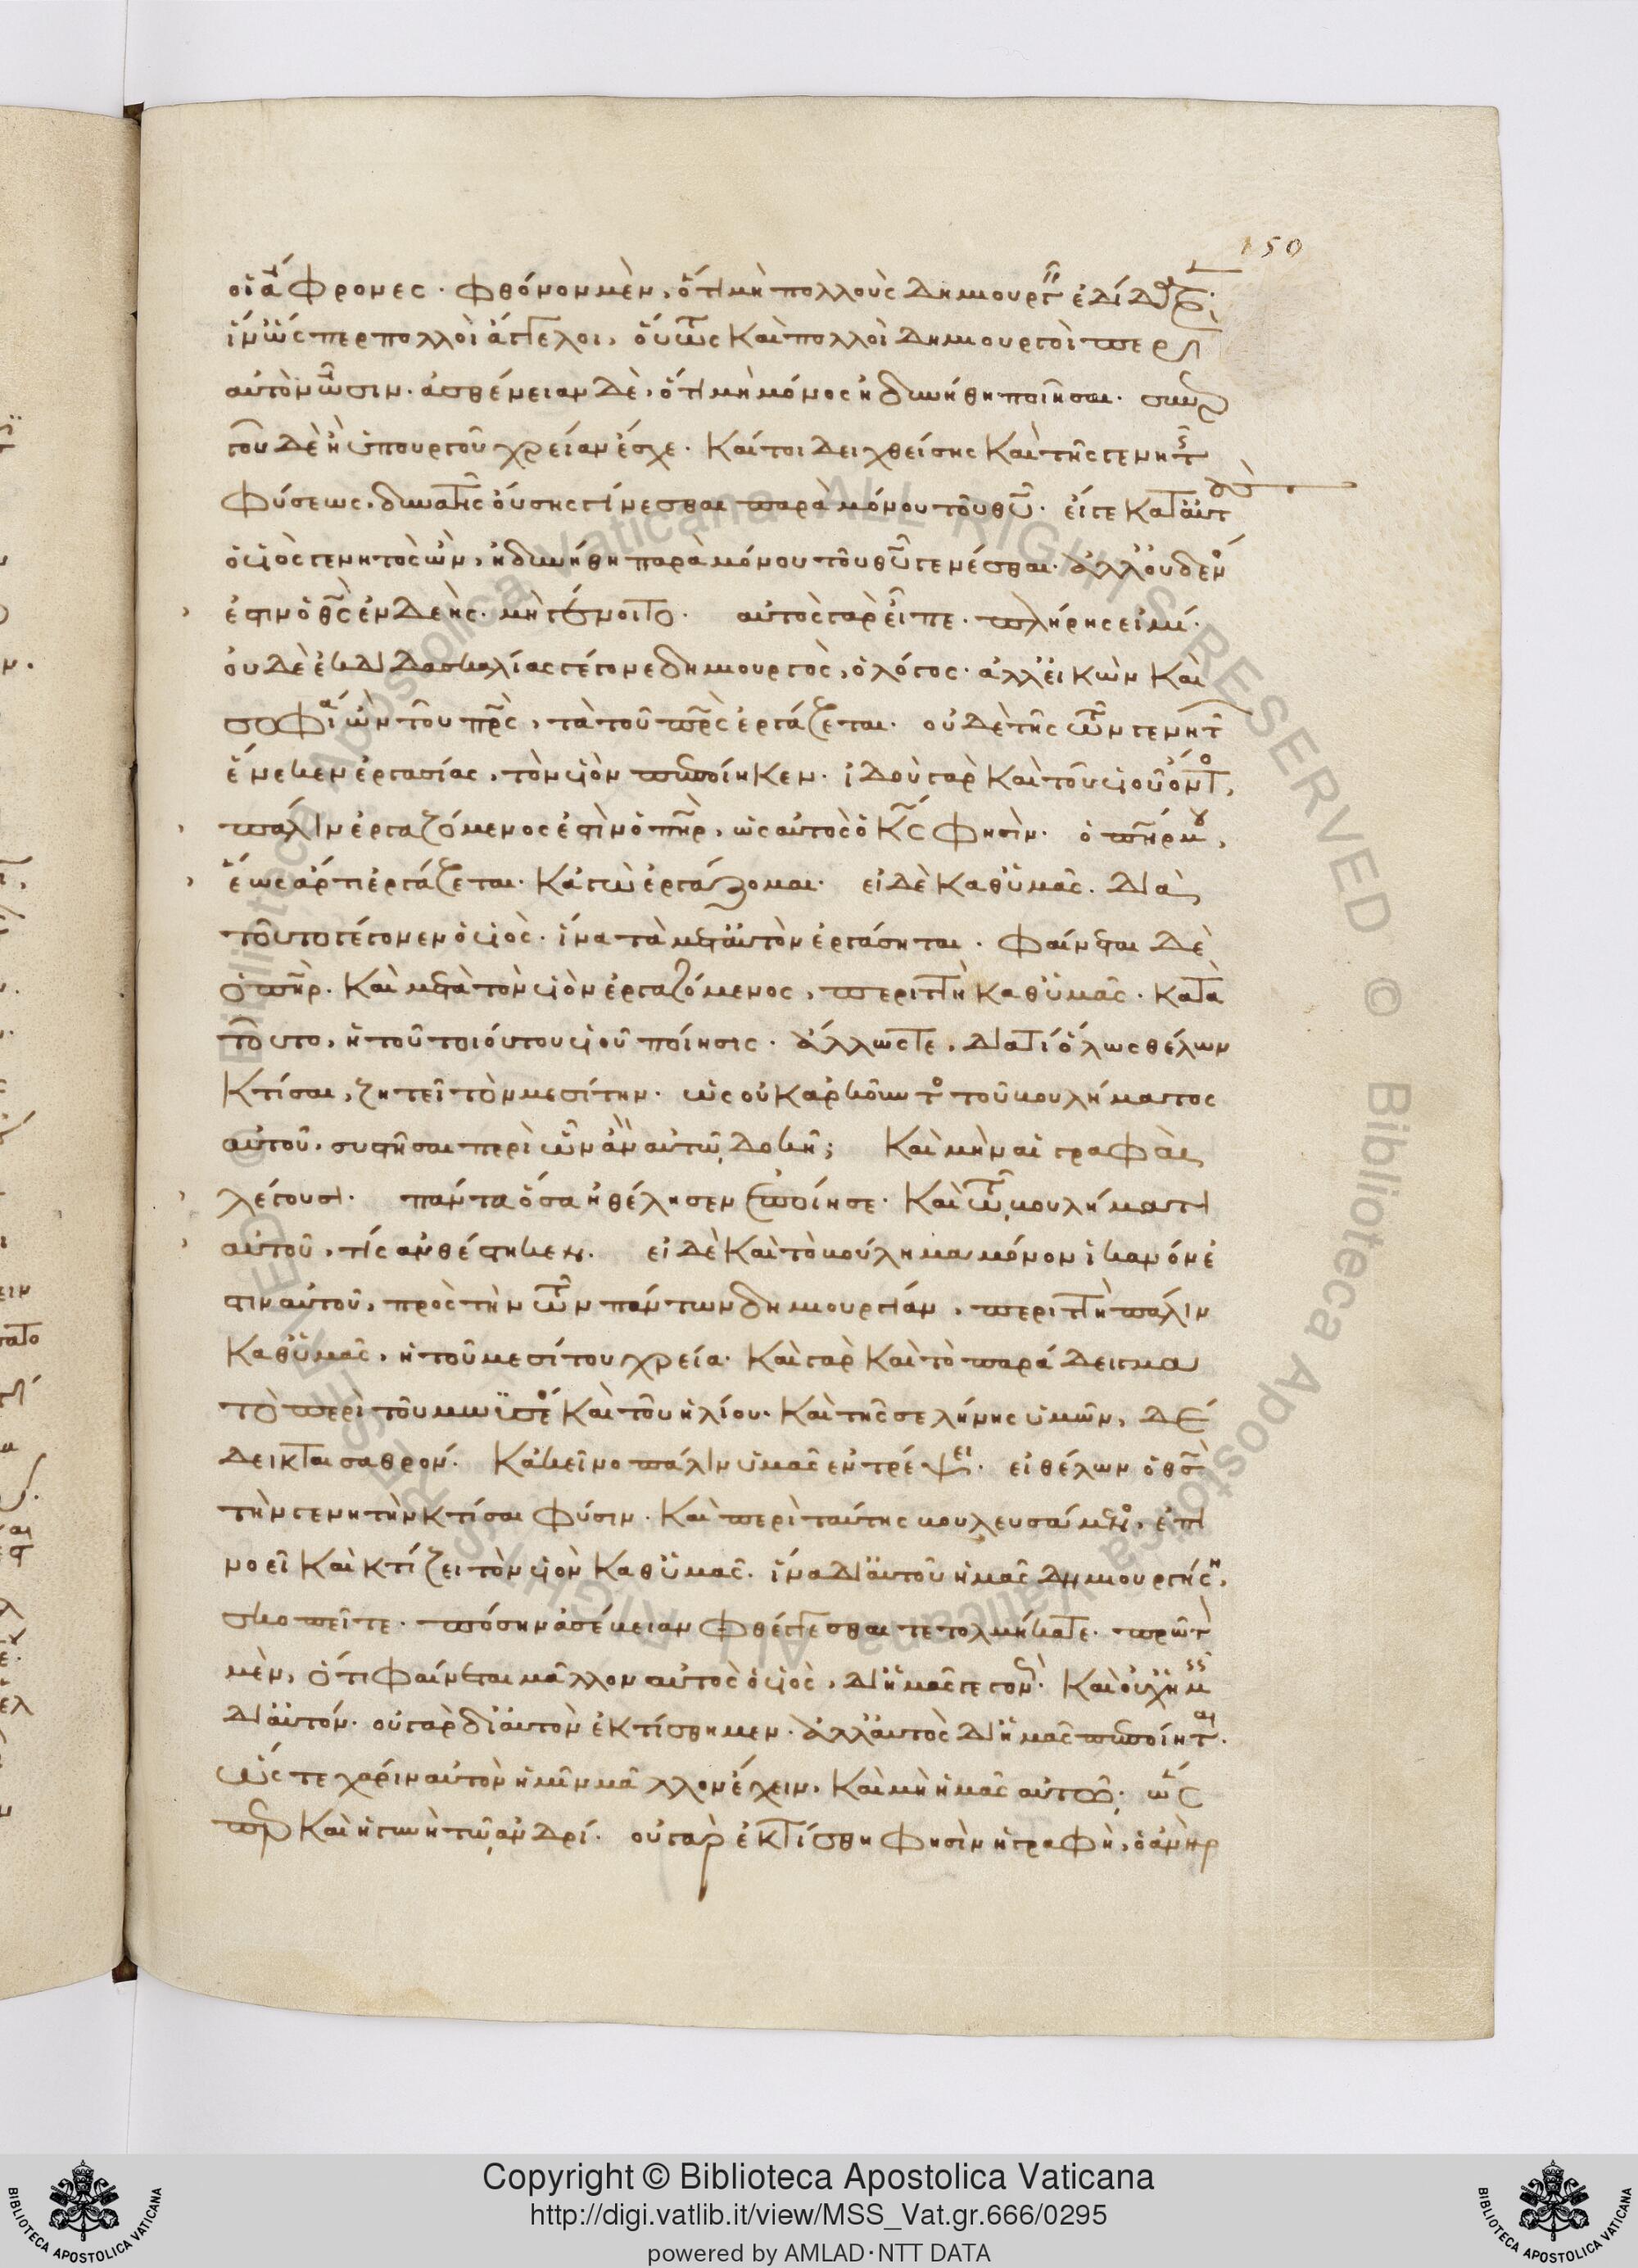 150
οἱ ἄφρονες· φθόνον μὲν, ὅτι μὴ πολλοὺς δημιουργεῖν ἐδίδαξεν·
ἵν' ὥσπερ πολλοὶ ἄγγελοι, οὕτως καὶ πολλοὶ δημιουργοὶ περὶ
αὐτὸν ὦσιν. ἀσθένειαν δὲ, ὅτι μὴ μόνος ἠδυνήθη ποιῆσαι· συνερ
τοῦ δὲ ἢ ὑπουργοῦ χρείαν ἔσχε· καίτοι δειχθείσης καὶ τῆς γενητῆς
φύσεως, δυνατῆς οὔσης γίνεσθαι παρὰ μόνου τοῦ θυ· εἴγε κατ' αὐτοὺς
ὁ υἱὸς γενητὸς ὢν, ἠδυνήθη παρὰ μόνου τοῦ θυ γενέσθαι. ἀλλ' οὐδενός
ἐστιν ὁ θς ἐνδεής. μὴ γένοιτο· αὐτὸς γὰρ εἶπε· πλήρης εἰμί·
οὐδὲ ἐκ διδασκαλίας γέγονε δημιουργὸς, ὁ λόγος· ἀλλ' εἰκὼν καὶ
σοφία ὢν τοῦ πρς, τὰ τοῦ πρς ἐργάζεται· οὐδὲ τῆς τῶν γενητῶν
ἕνεκεν ἐργασίας, τὸν υἱὸν πεποίηκεν· ἰδοὺ γὰρ καὶ τοῦ υἱοῦ ὄντος,
πάλιν ἐργαζόμενός ἐστιν ὁ πηρ, ὡς αὐτὸς ὁ κς φησὶν· ὁ πηρ μου,
ἕως ἄρτι ἐργάζεται· κἀγὼ ἐργάζομαι· εἰ δὲ καθ' ὑμᾶς. διὰ
τοῦτο γέγονεν ὁ υἱὸς· ἵνα τὰ μετ' αὐτὸν ἐργάσηται· φαίνεται δὲ
ὁ πηρ. καὶ μετὰ τὸν υἱὸν ἐργαζόμενος, περιττὴ καθ' ὑμᾶς· κατὰ
τοῦτο, ἡ τοῦ τοιούτου υἱοῦ ποίησις· ἄλλως τε, διατί ὅλως θέλων
κτίσαι, ζητεῖ τὸν μεσίτην· ὡς οὐκ ἀρκοῦντος τοῦ βουλήματος
αὐτοῦ, συστῆσαι περὶ ὧν ἂν αὐτῷ δοκῆ; καὶ μὴν αἱ γραφαὶ
λέγουσι· πάντα ὅσα ἠθέλησεν ἐποίησε· καὶ τῷ βουλήματι
αὐτοῦ, τίς ἀνθέστηκεν. εἰ δὲ καὶ τὸ βούλημα μόνον ἱκανόν ἐ
στιν αὐτοῦ, πρὸς τὴν τῶν πάντων δημιουργίαν, περιττὴ πάλιν
καθ' ὑμᾶς, ἡ τοῦ μεσίτου χρεία· καὶ γὰρ καὶ τὸ παράδειγμα
τὸ περὶ τοῦ μωϋσέος καὶ τοῦ ἡλίου· καὶ τῆς σελήνης ὑμῶν, δέ
δεικται σαθρόν. κἀκεῖνο πάλιν ὑμᾶς ἐντρέψει· εἰ θέλων ὁ θς
τὴν γενητὴν κτίσαι φύσιν· καὶ περὶ ταύτης βουλευσάμενος, ἐπι
νοεῖ καὶ κτίζει τὸν υἱὸν καθ' ὑμᾶς. ἵνα δι' αὐτοῦ ἡμᾶς δημιουργήσῃ,
σκοπεῖτε· πόσην ἀσέβειαν φθέγγεσθαι τετολμήκατε· πρῶτον
μὲν, ὅτι φαίνεται μᾶλλον αὐτὸς ὁ υἱὸς, δι' ἡμᾶς γεγονὼς· καὶ οὐχ ἡμεῖς
δι' αὐτόν· οὐ γὰρ δι' αὐτὸν ἐκτίσθημεν· ἀλλ' αὐτὸς δι' ἡμᾶς πεποίηται.
ὥστε χάριν αὐτὸν ἡμῖν μᾶλλον ἔχειν, καὶ μὴ ἡμᾶς αὐτῷ· ὥσ
περ καὶ ἡ γυνὴ τῷ ἀνδρί· οὐ γὰρ ἐκτίσθη φησὶν ἡ γραφὴ, ὁ ἀνὴρ
Copyright © Biblioteca Apostolica Vaticana
http://digi.vatlib.it/view/MSS_Vat.gr.666/0295
powered by AMLAD·NTT DATA